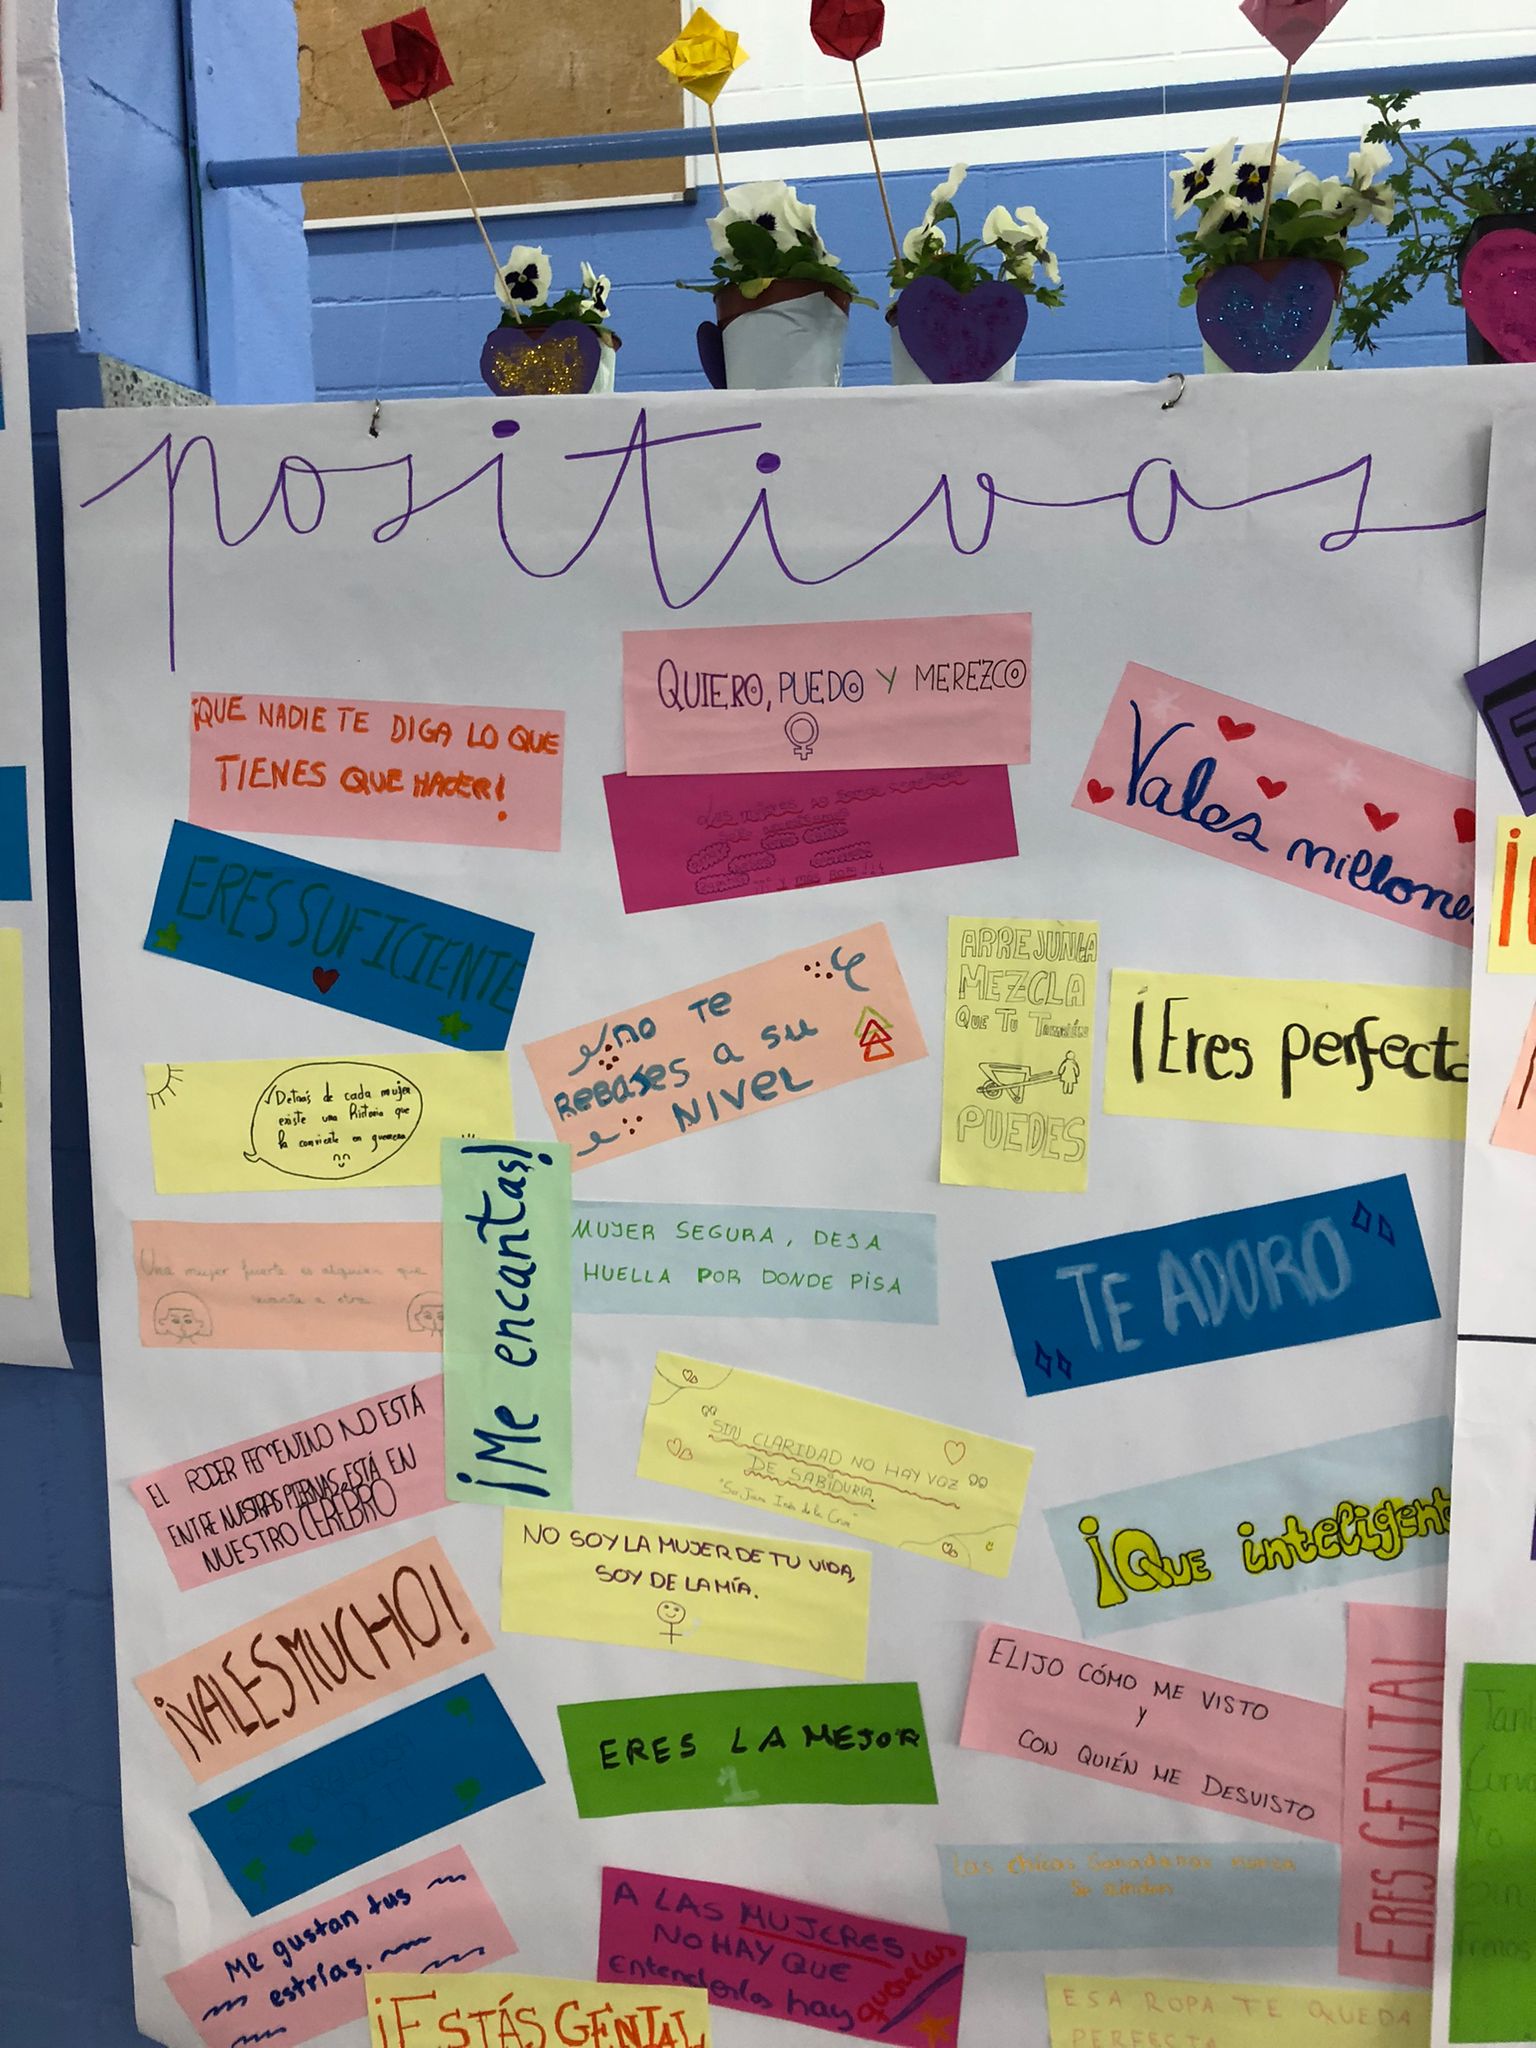 positivas
QUIERO, PUEDO Y MEREZCO
¡QUE NADIE TE DIGA LO QUE
TIENES QUE HACER!
Vales millone
ERES SUFICIENTE
NO TE
REBAJES A SU
NIVEL
ARREJUNTA
MEZCLA
QUE TU TAMBIÉN
PUEDES
¡Eres perfecta
Detrás de cada mujer
existe una historia que
la convierte en guerrera
¡Me encantas!
MUJER SEGURA, DEJA
HUELLA POR DONDE PISA
TE ADORO
Una mujer fuerte es alguien que
levanta a otra
EL PODER FEMENINO NO ESTÁ
ENTRE NUESTRAS PIERNAS, ESTÁ EN
NUESTRO CEREBRO
SIN CLARIDAD NO HAY VOZ
DE SABIDURIA.
"Sor Juana Inés de la Cruz"
¡QUE inteligent
NO SOY LA MUJER DE TU VIDA,
SOY DE LA MÍA.
¡VALES MUCHO!
ELIJO CÓMO ME VISTO
Y
CON QUIÉN ME DESVISTO
ERES GENIAL
ERES LA MEJOR
1
Las chicas ganadoras nunca
se rinden
Me gustan tus
estrías.
A LAS MUJERES
NO HAY QUE
entenderlas hay
quererlas
¡ESTÁS GENIAL
ESA ROPA TE QUEDA
PERFECTA